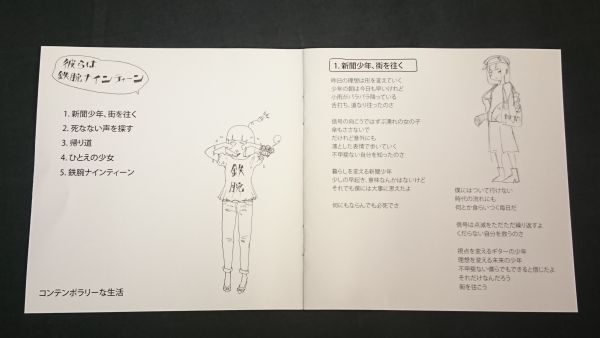 彼らは
鉄腕ナインティーン
1. 新聞少年、街を往く
2. 死なない声を探す
3. 帰り道
4. ひとえの少女
5. 鉄腕ナインティーン
鉄
腕
コンテンポラリーな生活
1. 新聞少年、街を往く
昨日の理想は形を変えていく
少年の朝は今日も早いけれど
小雨がパラパラ降っている
舌打ち、道なり往ったのさ
信号の向こうではずぶ濡れの女の子
傘もささないで
だけれど意外にも
凛とした表情で歩いていく
不甲斐ない自分を知ったのさ
暮らしを変える新聞少年
少しの早起き、意味なんかはないけど
それでも僕には大事に思えたよ
何にもならんでも必死でさ
僕にはついて行けない
時代の流れにも
何とか食らいつく毎日だ
信号は点滅をただただ繰り返すよ
くだらない自分を救うのさ
視点を変えるギターの少年
理想を変える未来の少年
不甲斐ない僕らでもできると信じたよ
それだけなんだろう
街を往こう